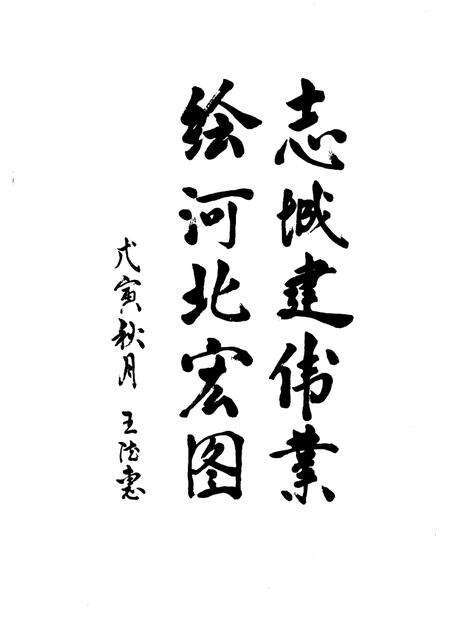 志城建伟业
绘河北宏图
戊寅秋月 王陆惠